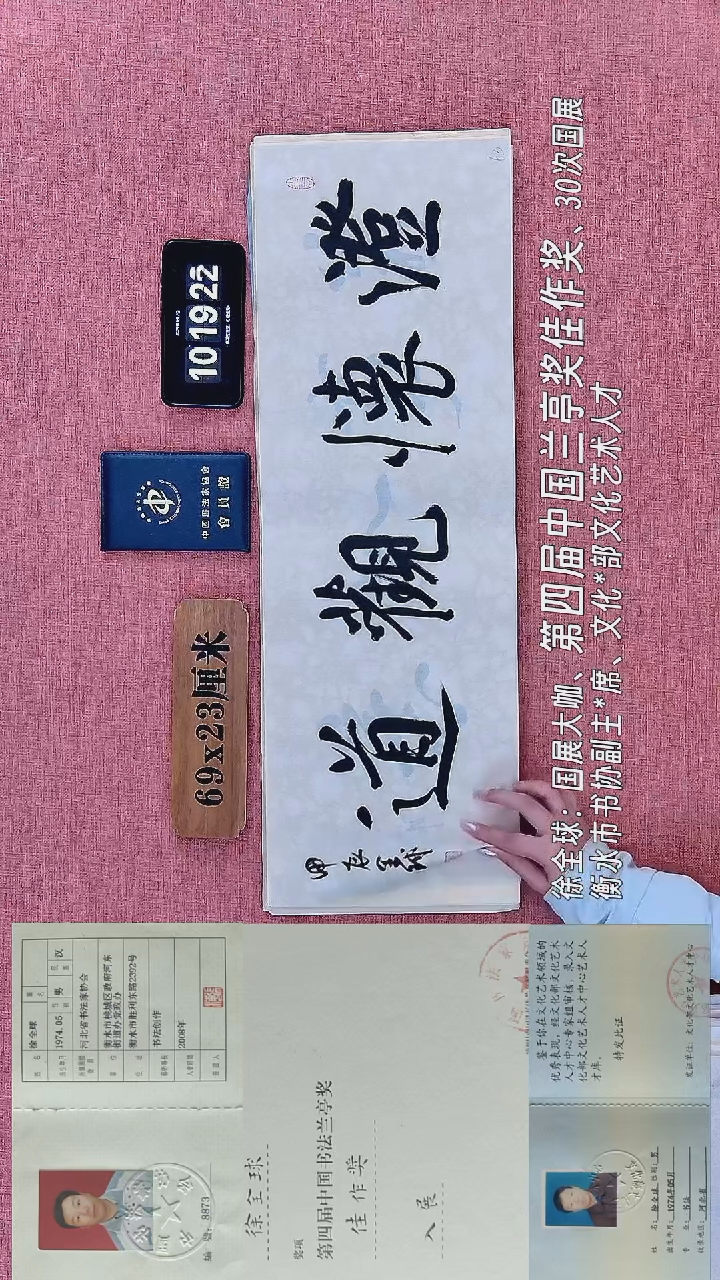 澄懷觀道
甲辰全球
101922
中国书法家协会
會員證
69x23厘米
徐全球：国展大咖、第四届中国兰亭奖佳作奖、30次国展
衡水市书协副主*席、文化*部文化艺术人才
姓名 徐全球
1974.05 性别 男 民族 汉
河北省书法家协会
衡水市桃城区政府河东
街道办党政办
衡水市胜利东路2392号
书法创作
2008年
编号: 8873
徐全球
奖项
第四届中国书法兰亭奖
佳作奖
入展
鉴于你在文化艺术领域的
优秀表现，经文化部文化艺术
人才中心专家组审核，录入文
化部文化艺术人才中心艺术人
才库。
特发此证
发证单位：文化部文化艺术人才中心
姓名：徐全球 性别：男
出生年月：1974年05月
专业：书法